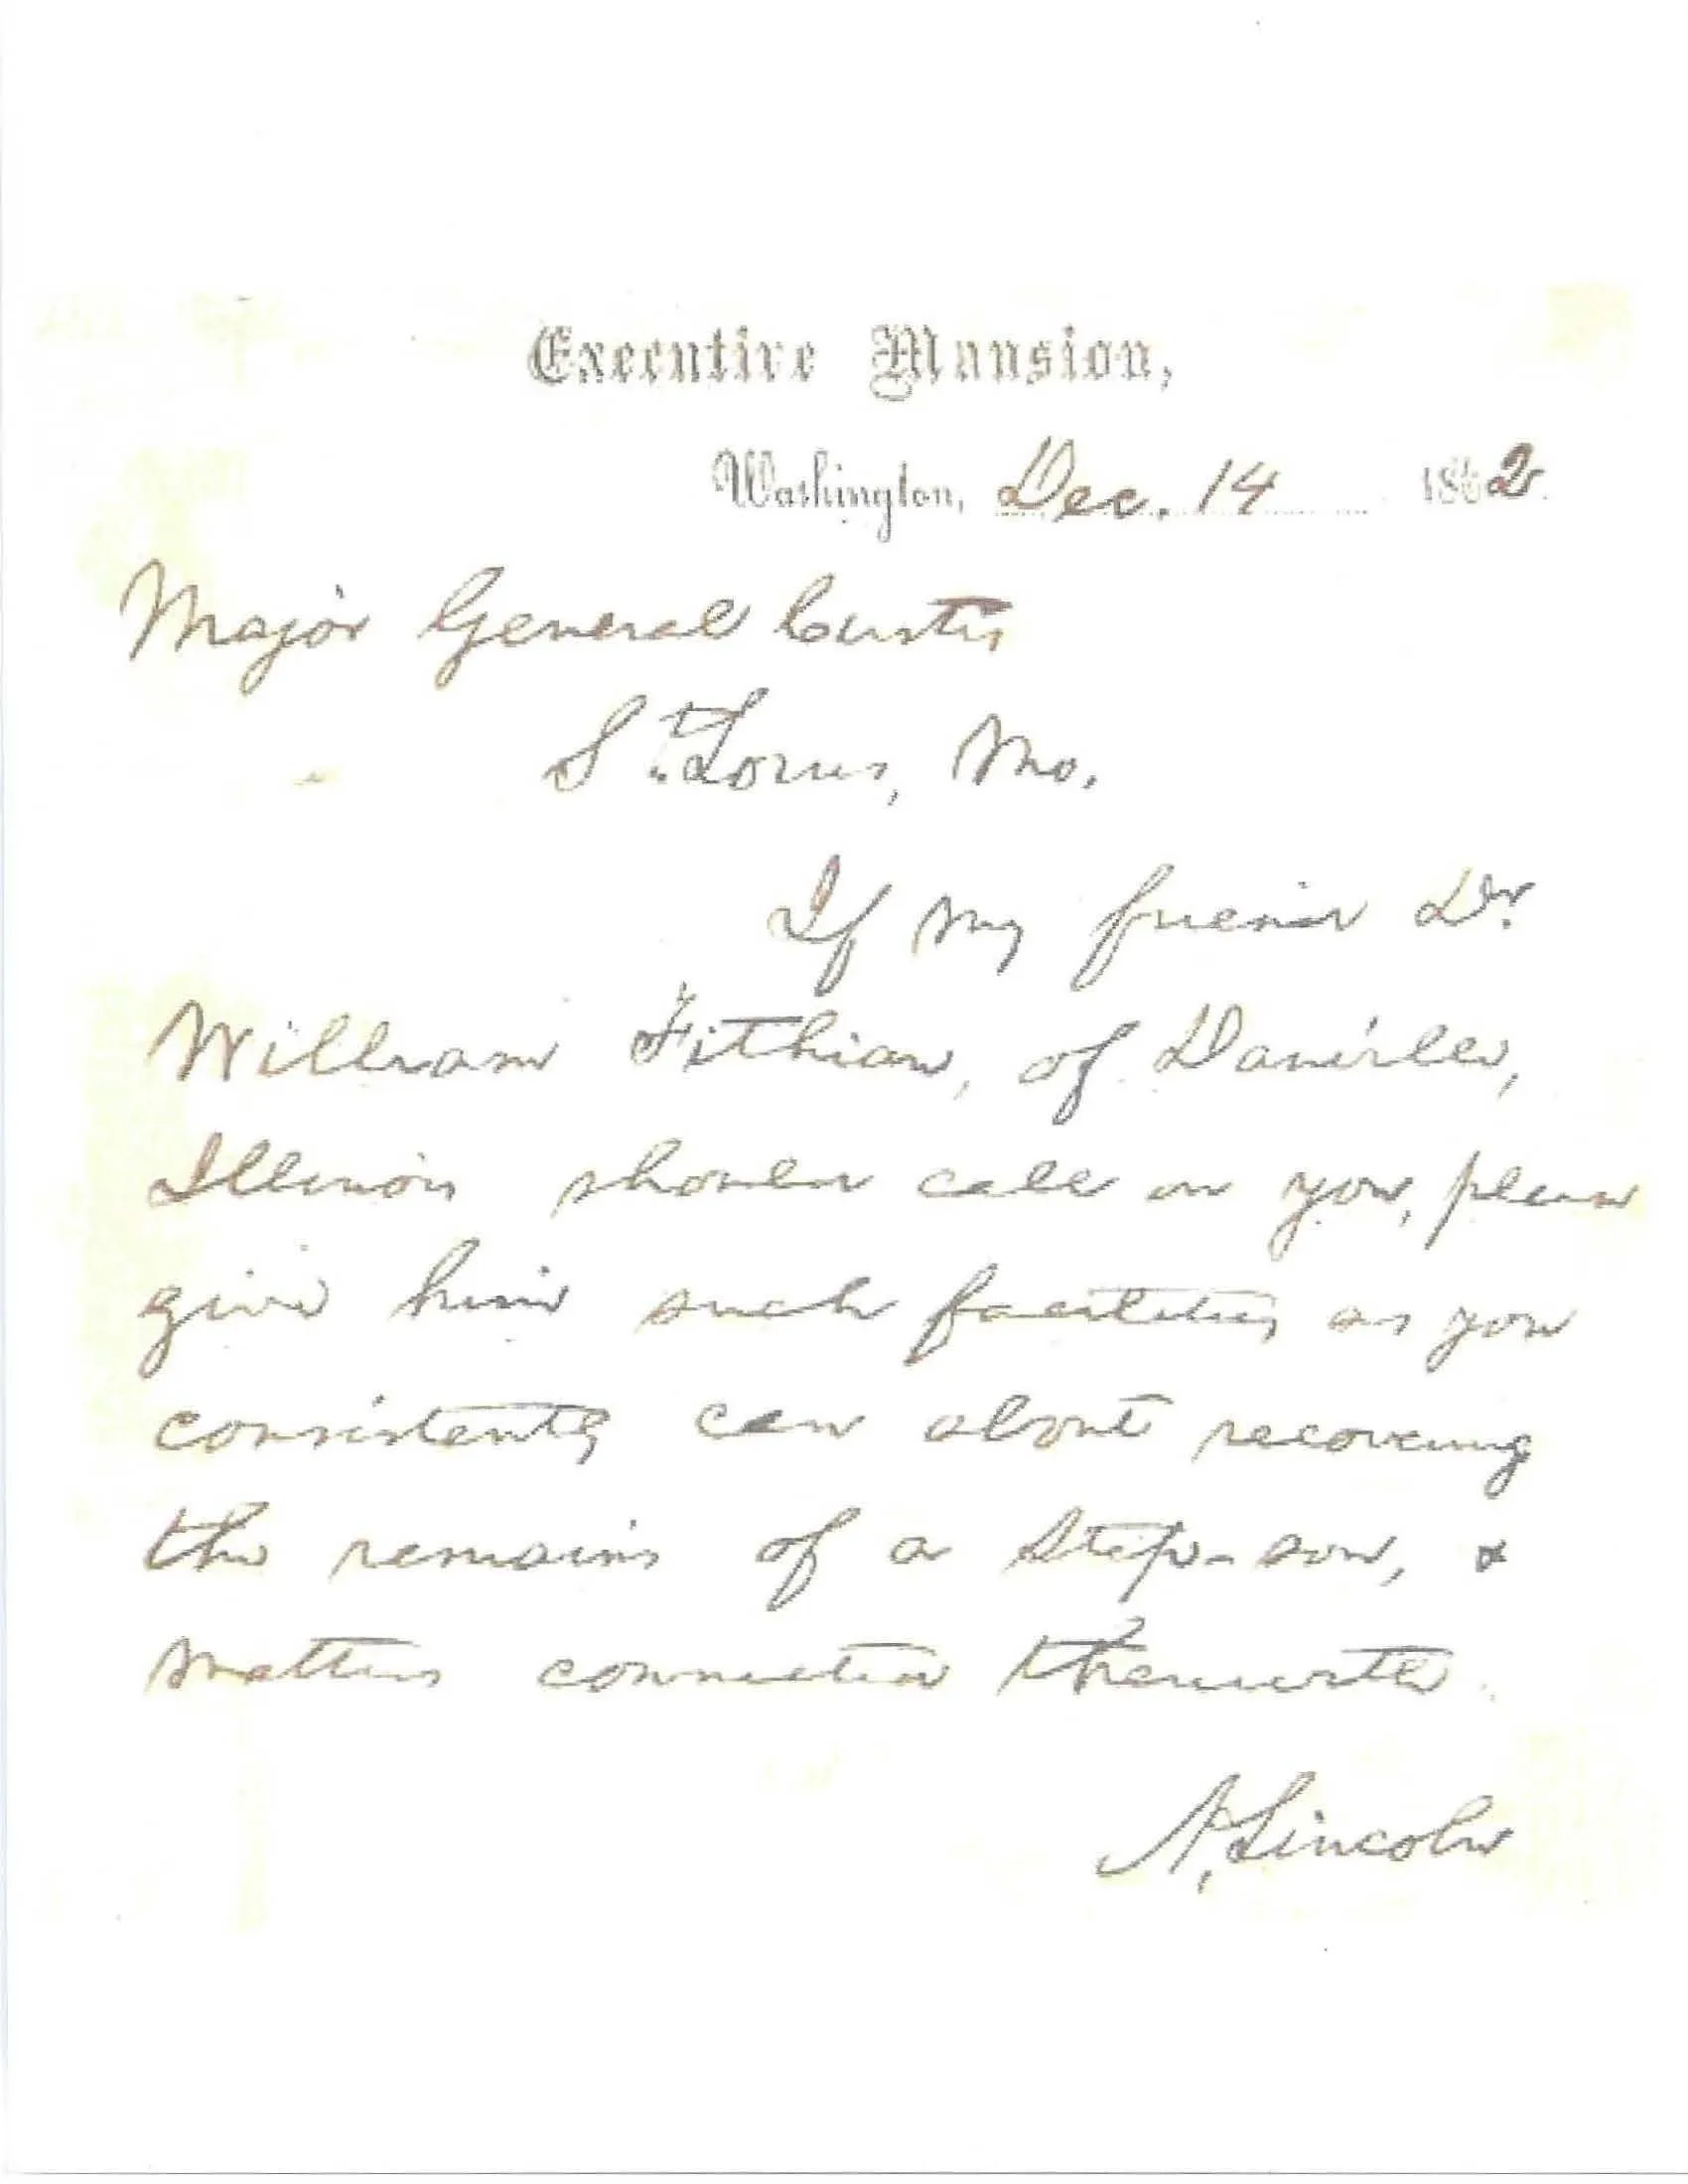 Executive Mansion,
Washington, Dec. 14 1862.
Major General Curtis
St. Louis, Mo.
If my friend Dr.
William Fithian, of Danville,
Illinois should call on you, please
give him such facilities as you
consistently can about recovering
the remains of a step-son, &
matters connected therewith.
A. Lincoln